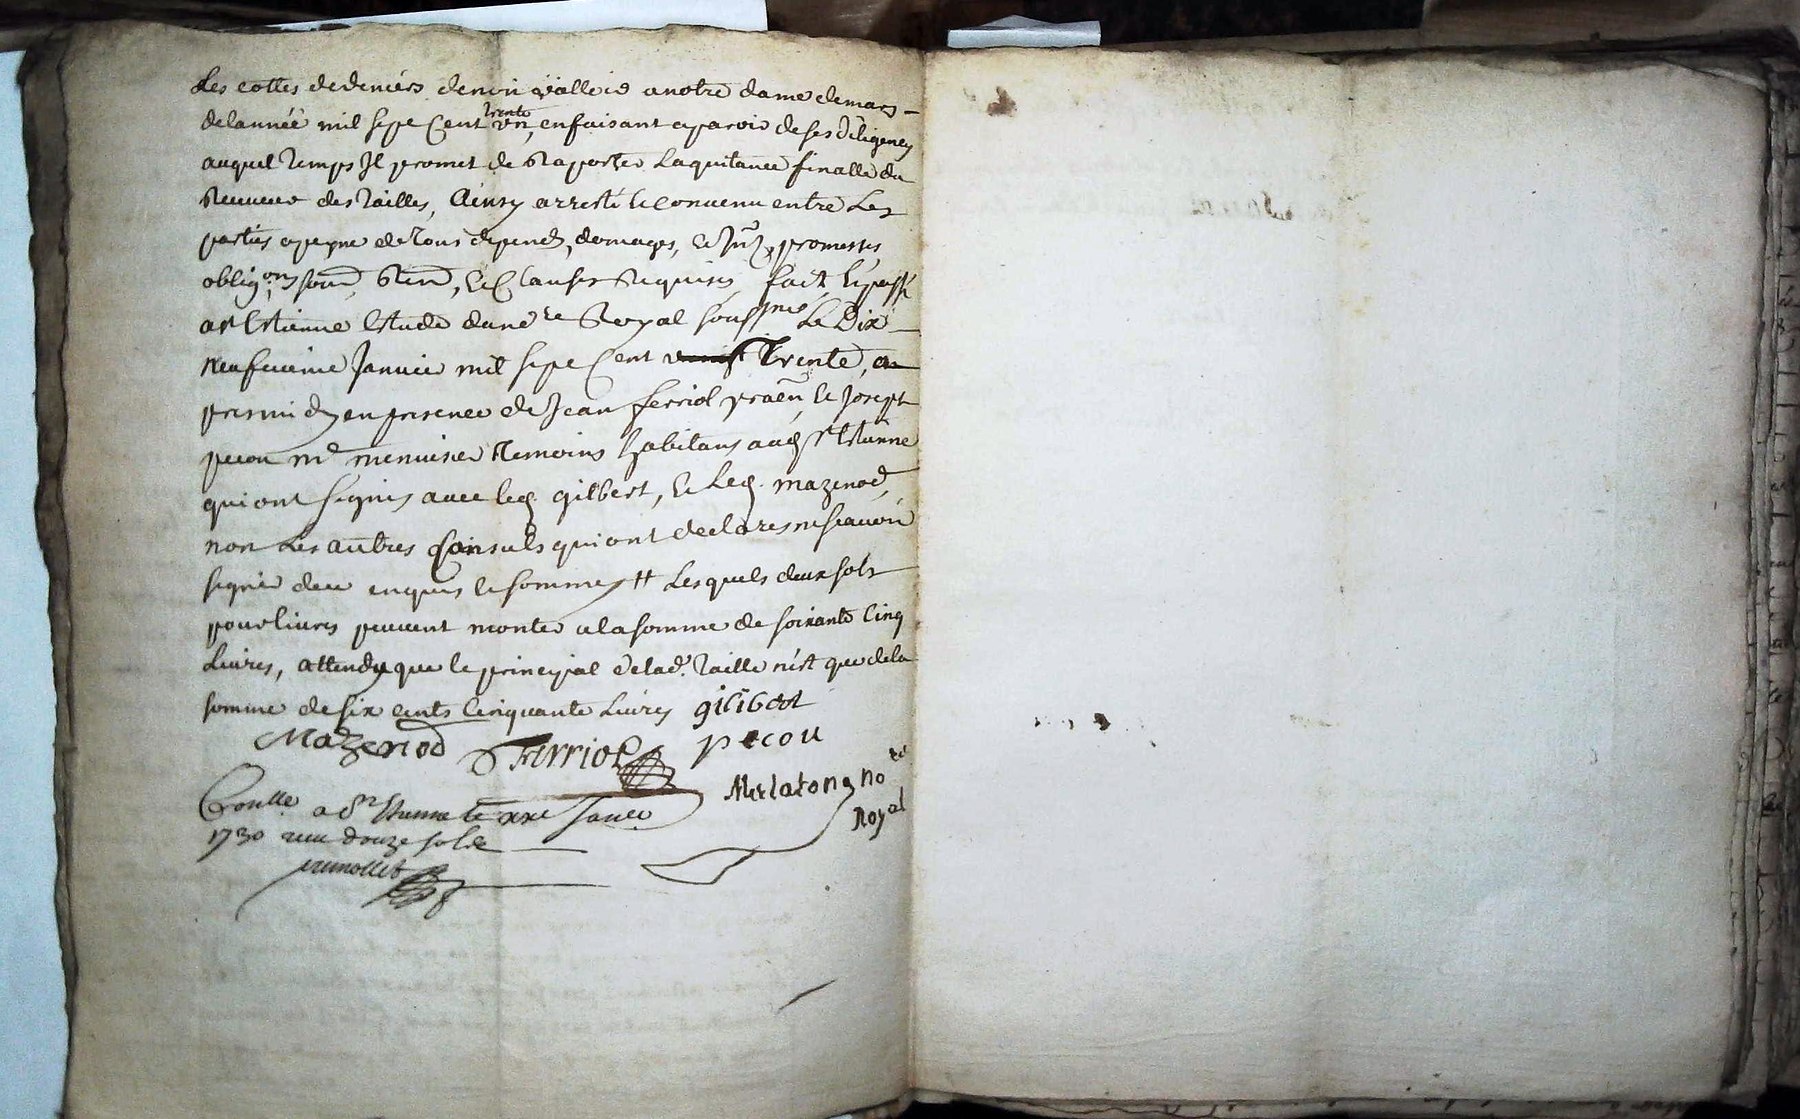 Les cottes de deniers de non valleur a notre dame de mars
de lannée mil sept Cent trente un, en faisant aparoir de ses diligences
auquel temps Il promet de Raporter La quitance finalle du
Receveur des Tailles, Ainsy arresté et convenu entre Les
parties a peyne de tous depends, domages, et promesses,
oblig.ons soum, Ren, et Clauses Requises, fait et passé
a St Etienne Estude dud re Royal soussigné Le Dix
neufvieme Janvier mil sept Cent Trente, a
pres midy en presence de Jean ferriol praen, et Joseph
pecou md menuisier Temoins habitans aud St Etienne
qui ont signes avec led. gilbert, et Led. mazenod,
non Les autres Consuls qui ont declares ne scavoir
signer de ce enquis et sommes # Lesquels deux sols
pour livres peuvent monter a la somme de soixante Cinq
Livres, attendu que le principal de lad. Taille n'est que de la
somme de six cents Cinquante Livres gilibert
Mazenod Ferriol pecou
Merlaton no re
Royal
Con.lle a St Etienne le xxe Janer
1730 recu douze sols